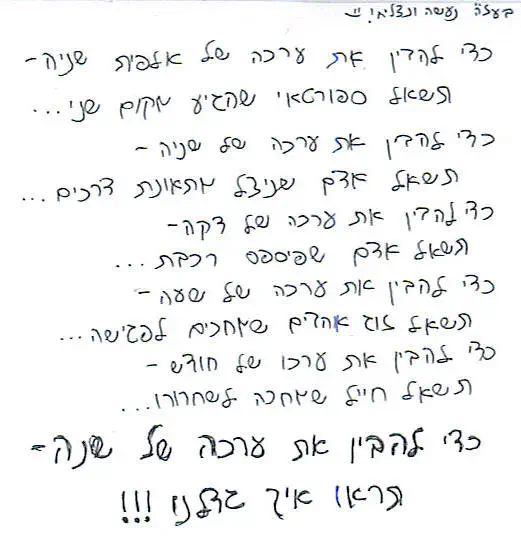 בעזה נעשה ונצליח! :)
כדי להבין את ערכה של אלפית שניה-
תשאל ספורטאי שהגיע מקום שני...
כדי להבין את ערכה של שניה -
תשאל אדם שניצל מתאונת דרכים...
כדי להבין את ערכה של דקה-
תשאל אדם שפיספס רכבת...
כדי להבין את ערכה של שעה-
תשאל זוג אוהבים שמחכים לפגישה...
כדי להבין את ערכו של חודש -
תשאל חייל שמחכה לשחרורו...
כדי להבין את ערכה של שנה-
תראו איך גדלנו !!!